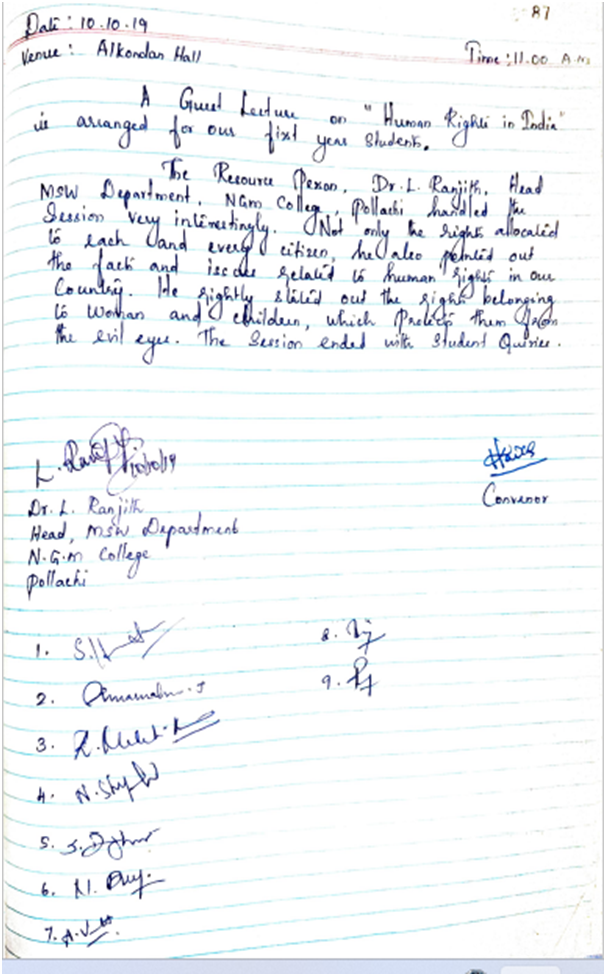 87
Date : 10.10.19
Venue : Alkondan Hall
Time : 11.00 A.M
A Guest Lecture on "Human Rights in India"
is arranged for our first year students.
The Resource Person, Dr. L. Ranjith, Head
MSW Department, NGM College, Pollachi handled the
Session very interestingly. Not only the rights allocated
to each and every citizen, he also pointed out
the fact and issues related to human rights in our
Country. He rightly stated out the rights belonging
to woman and children, which protects them from
the evil eyes. The Session ended with Student Queries.
L.
Dr. L. Ranjith
Head, MSW Department
N.G.M College
Pollachi
Convenor
1.
2.
3.
4.
5.
6.
7.
8.
9.